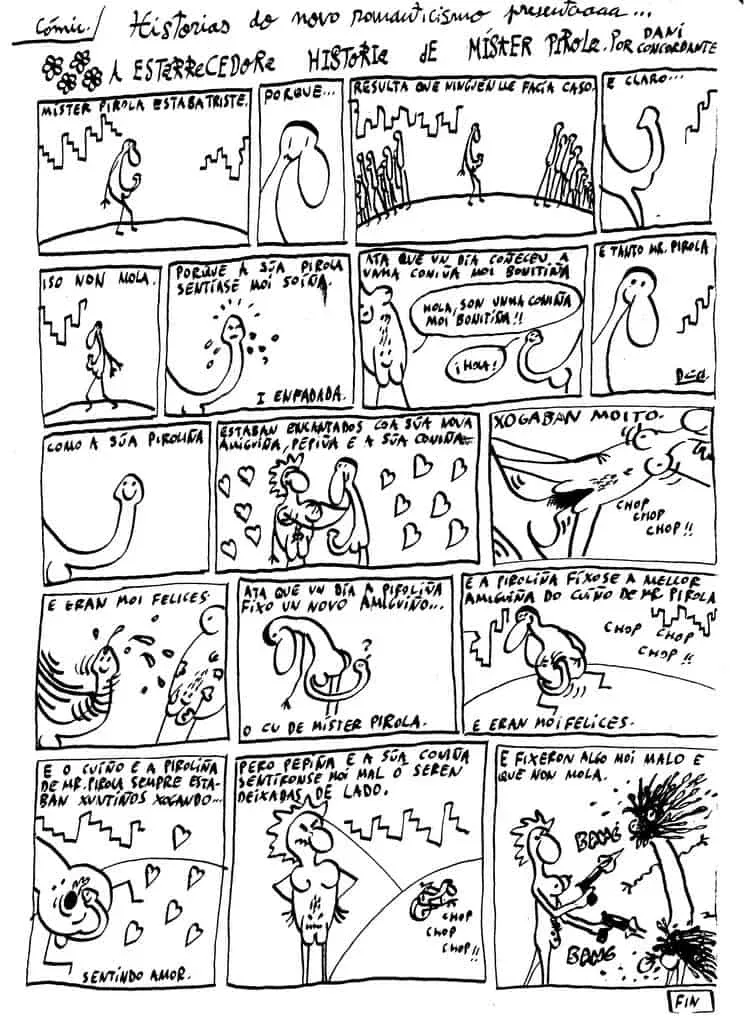 Cómic/
Historias do novo romanticismo presentaaaa...
A ESTARRECEDORA HISTORIA DE MÍSTER PIROLA. POR DANI
CONCORDANTE
MÍSTER PIROLA ESTABA TRISTE.
PORQUE...
RESULTA QUE NINGUÉN LLE FACÍA CASO.
E CLARO...
ISO NON MOLA.
PORQUE A SÚA PIROLA
SENTÍASE MOI SOIÑA.
I ENFADADA.
ATA QUE UN DÍA COÑECEU A
UNHA CONIÑA MOI BONITIÑA
HOLA, SON UNHA CONIÑA
MOI BONITIÑA!!
¡HOLA!
E TANTO MR. PIROLA
COMO A SÚA PIROLIÑA
ESTABAN ENCANTADOS COA SÚA NOVA
AMIGUIÑA, PEPIÑA E A SÚA CONIÑA
XOGABAN MOITO.
CHOP
CHOP
CHOP!!
E ERAN MOI FELICES.
ATA QUE UN DÍA A PIROLIÑA
FIXO UN NOVO AMIGUIÑO...
?
O CU DE MÍSTER PIROLA.
E A PIROLIÑA FÍXOSE A MELLOR
AMIGUIÑA DO CUIÑO DE MR. PIROLA
CHOP
CHOP
CHOP!!
E ERAN MOI FELICES.
E O CUIÑO E A PIROLIÑA
DE MR. PIROLA SEMPRE ESTA-
BAN XUNTIÑOS XOGANDO...
SENTINDO AMOR.
PERO PEPIÑA E A SÚA CONIÑA
SENTÍRONSE MOI MAL Ó SEREN
DEIXADAS DE LADO.
CHOP
CHOP
CHOP!!
E FIXERON ALGO MOI MALO E
QUE NON MOLA.
BANG
BANG
FIN